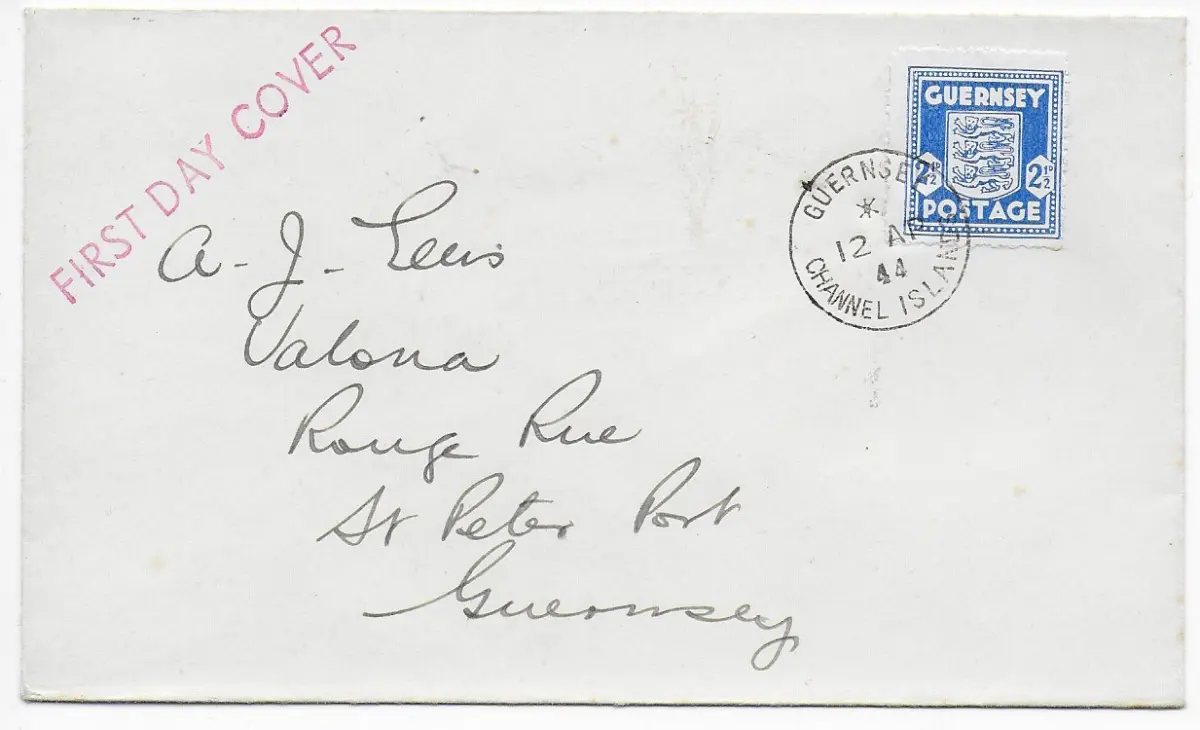 FIRST DAY COVER
GUERNSEY
2½ᴰ 2½ᴰ
POSTAGE
GUERNSEY
12 AP
44
CHANNEL ISLANDS
A - J - Lewis
Valona
Rouge Rue
St Peter Port
Guernsey